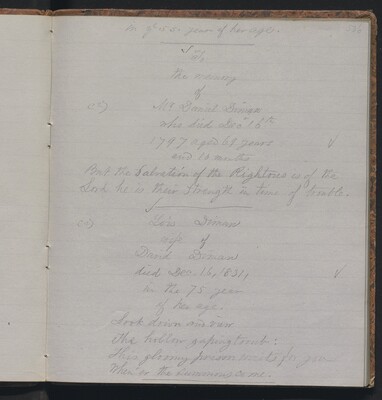 in ye 55 year of her age.
To
The memory
of
Mr Daniel Diman
who died Decr 16th
1797 aged 61 years
and 10 months
But the Salvation of the Righteous is of the
Lord he is their Strength in time of trouble.
Lois Diman
wife of
David Diman
died Dec. 16, 1831,
in the 75 year
of her age.
Look down and view
The hollow gaping tomb:
This gloomy prison waits for you
When'er the summons come.